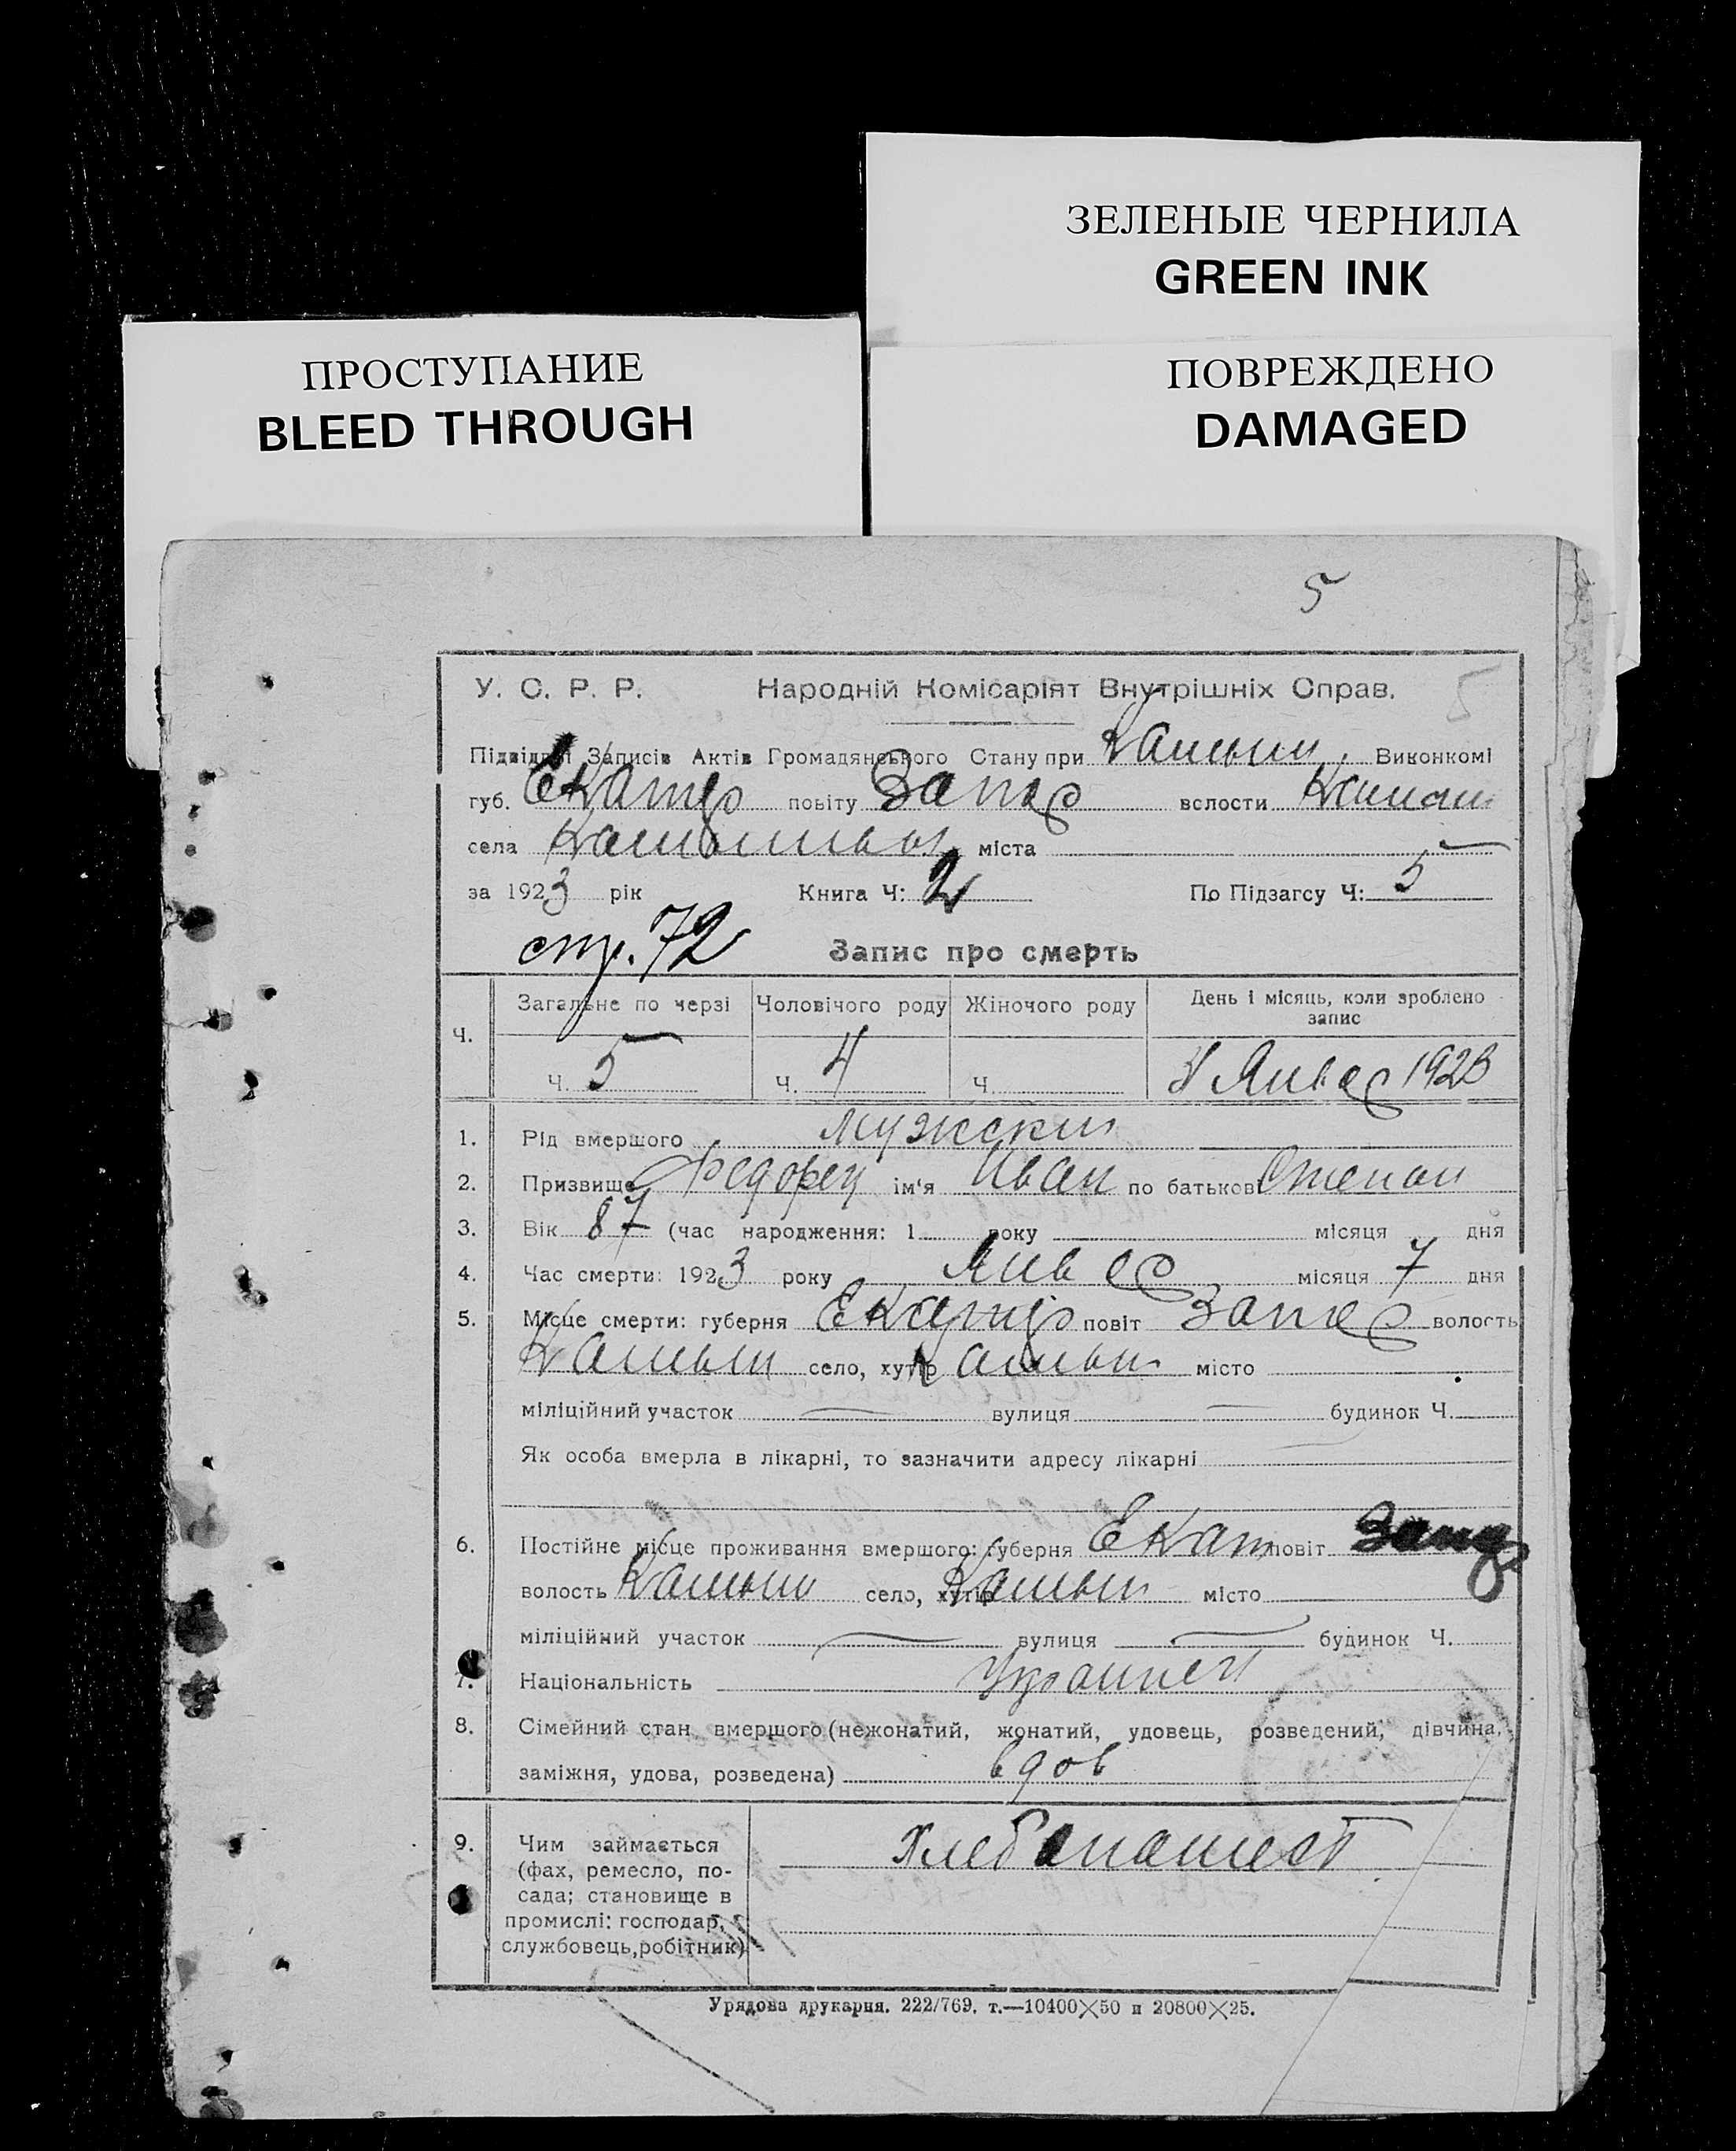 ЗЕЛЕНЫЕ ЧЕРНИЛА
GREEN INK
ПРОСТУПАНИЕ
BLEED THROUGH
ПОВРЕЖДЕНО
DAMAGED
5
У. С. Р. Р. Народній Комісаріят Внутрішніх Справ. 5
Підвідділ Записів Актів Громадянського Стану при Виконкомі
губ. Екатер повіту Запор волости
села міста
за 1923 рік Книга Ч: 2 По Підзагсу Ч: 5
стр. 72 Запис про смерть
Ч. Загальне по черзі Чоловічого роду Жіночого роду День і місяць, коли зроблено запис
Ч. 5 Ч. 4 Ч. Январ 1923
1. Рід вмершого мужской
2. Призвище Федорец ім'я Иван по батькові Степан
3. Вік 87 (час народження: 1 року місяця дня
4. Час смерти: 1923 року Январ місяця 7 дня
5. Місце смерти: губерня Екатер повіт Запор волость
село, хутір місто
міліційний участок — вулиця — будинок Ч.
Як особа вмерла в лікарні, то зазначити адресу лікарні
6. Постійне місце проживання вмершого: губерня Екат повіт Запор
волость село, хутір місто
міліційний участок — вулиця — будинок Ч.
7. Національність Украинец
8. Сімейний стан вмершого (нежонатий, жонатий, удовець, розведений, дівчина,
заміжня, удова, розведена) вдов
9. Чим займається Хлебопашест
(фах, ремесло, по-
сада; становище в
промислі: господар,
службовець, робітник)
Урядова друкарня. 222/769. т.—10400×50 п 20800×25.